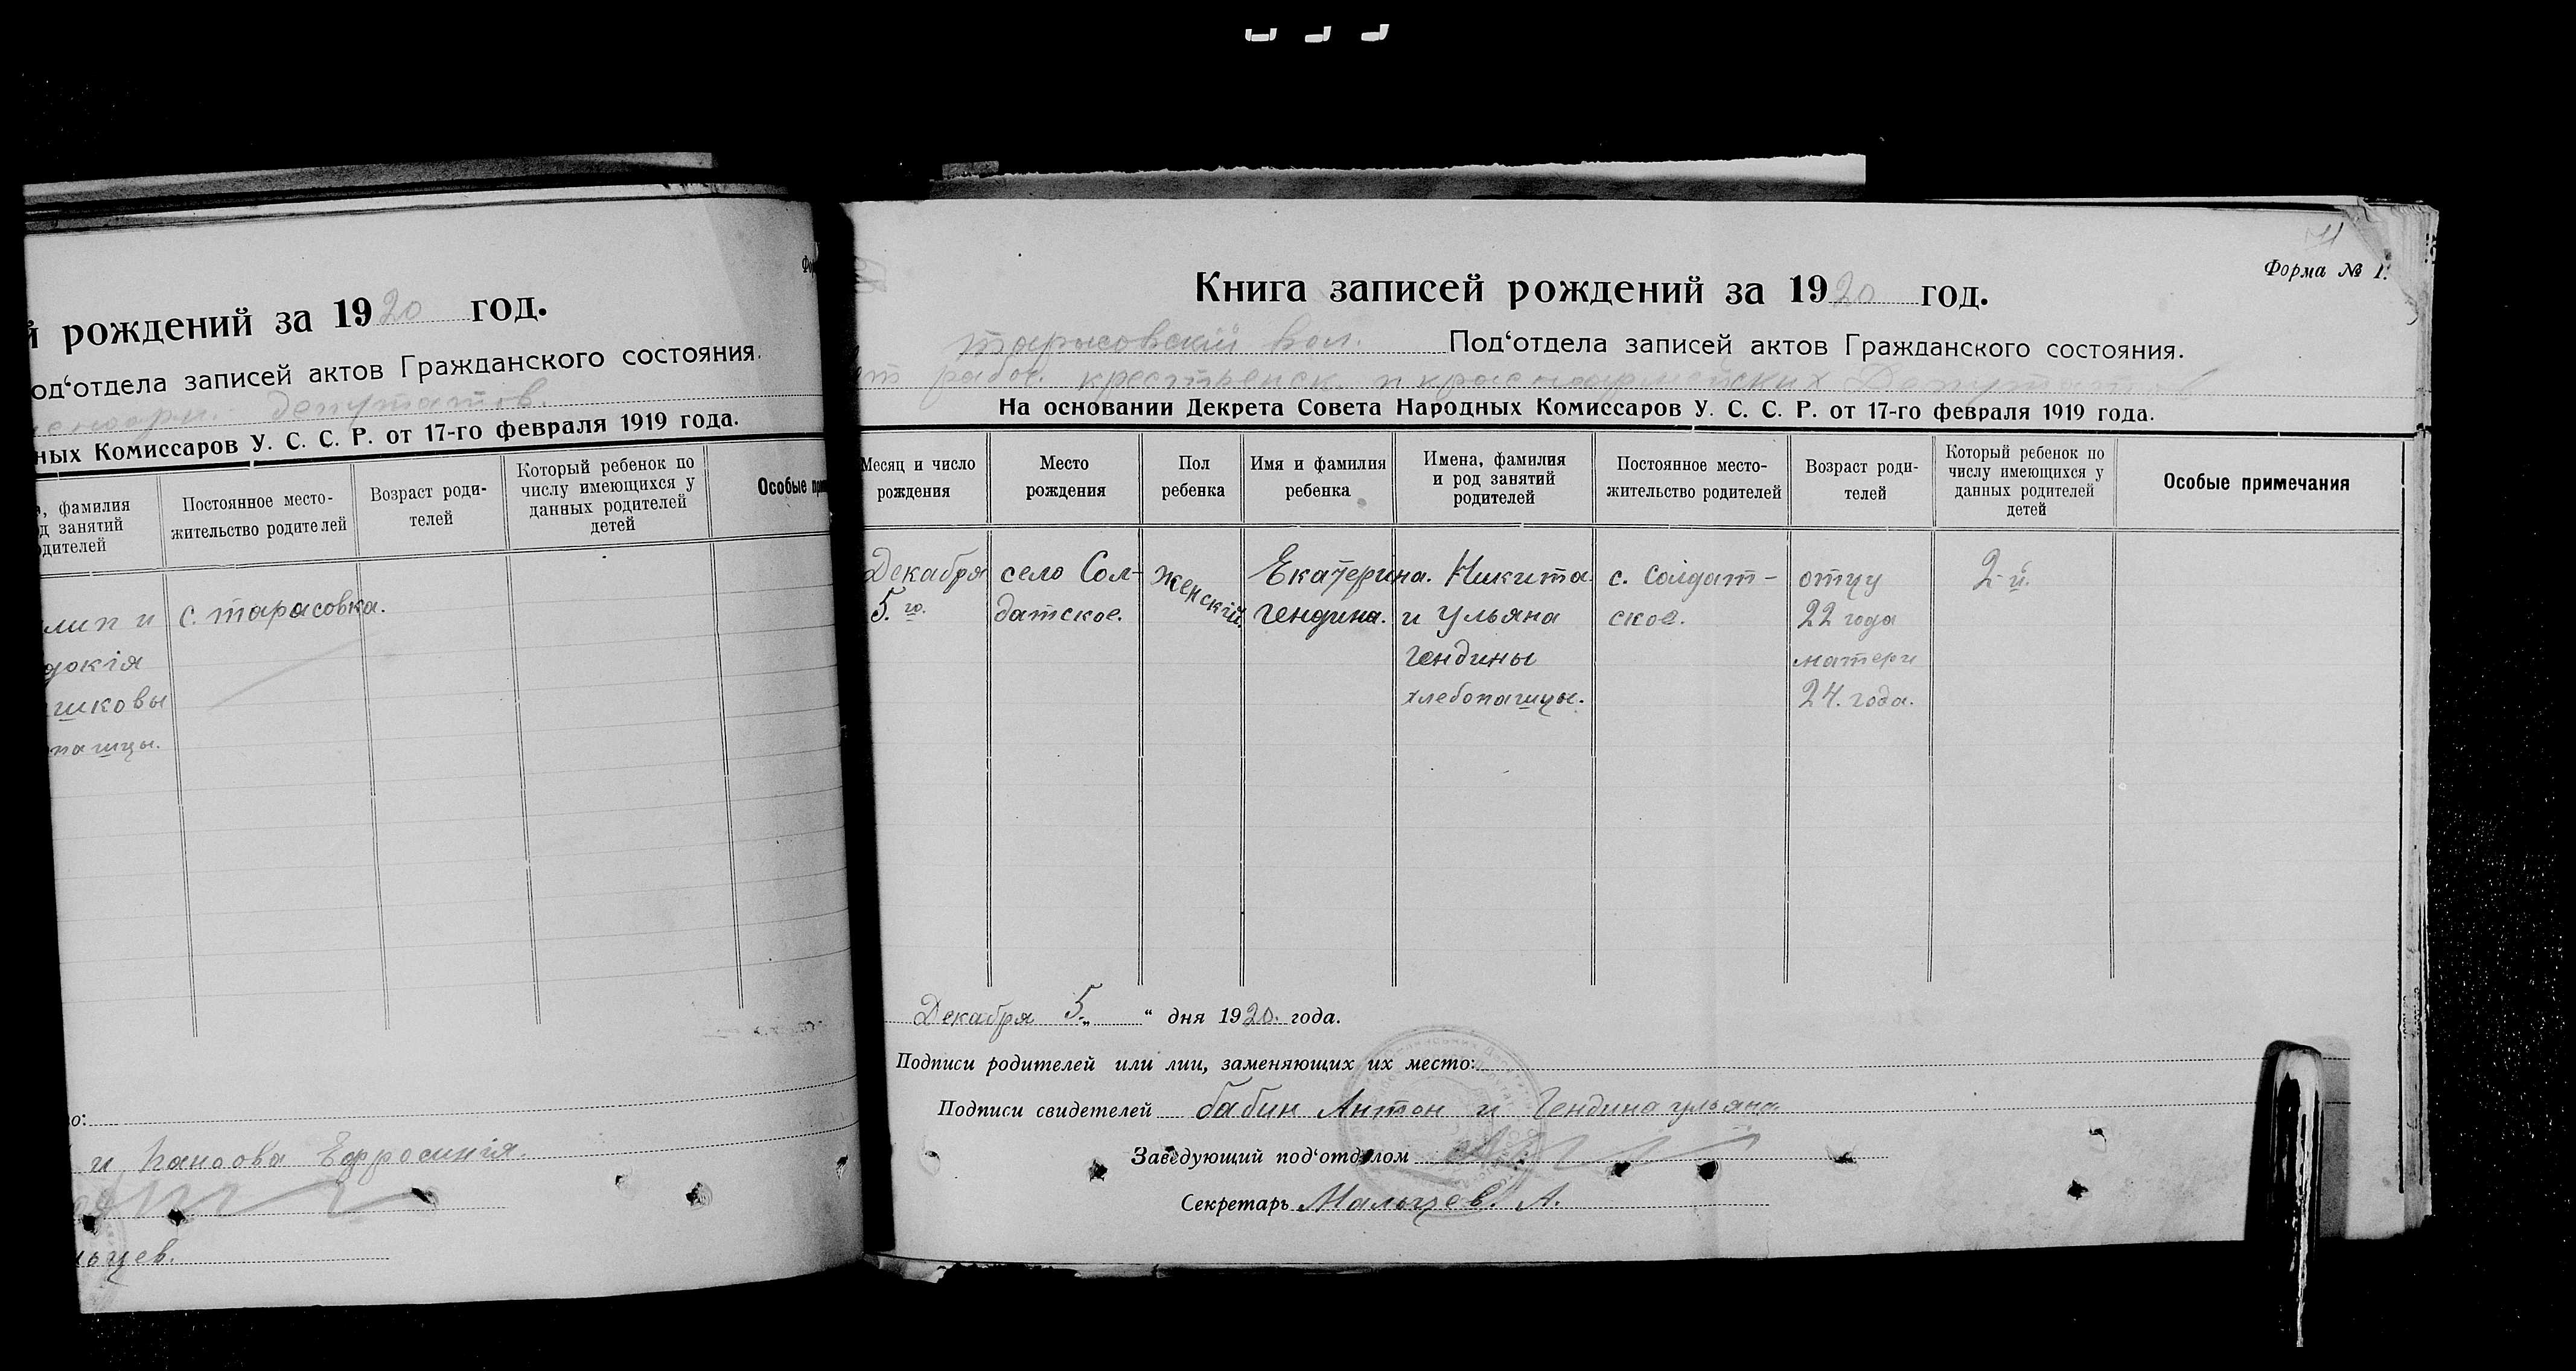 й рождений за 1920 год.
од‘отдела записей актов Гражданского состояния.
депутатов.
ных Комиссаров У. С. С. Р. от 17-го февраля 1919 года.
фамилия
од занятий
одителей
Постоянное место-
жительство родителей
Возраст роди-
телей
Который ребенок по
числу имеющихся у
данных родителей
детей
Особые прим
лип и
докія
шковы
пашцы.
с. тарасовка.
о:
и Ефросинія.
льцев.
Форма № 1.
Книга записей рождений за 1920 год.
тарасовский вол. Под‘отдела записей актов Гражданского состояния.
рабоч. крестьянск. и красноармейских Депутатов
На основании Декрета Совета Народных Комиссаров У. С. С. Р. от 17-го февраля 1919 года.
Месяц и число
рождения
Место
рождения
Пол
ребенка
Имя и фамилия
ребенка
Имена, фамилия
и род занятий
родителей
Постоянное место-
жительство родителей
Возраст роди-
телей
Который ребенок по
числу имеющихся у
данных родителей
детей
Особые примечания
Декабря
5го.
село Сол-
датское.
женскій.
Екатерина.
Гендина.
Никита
и Ульяна
Гендины
хлебопашцы.
с. Солдат-
ское.
отцу
22 года
матери
24. года.
2-й.
Декабря 5 „ “ дня 1920. года.
Подписи родителей или лиц, заменяющих их место:
Подписи свидетелей бабин Антон и Гендина ульяна
Заведующий под‘отделом
Секретарь Мальцев. А.